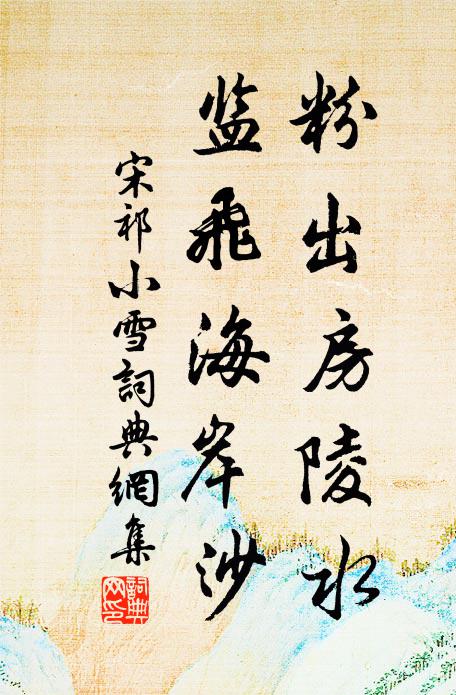 粉出房陵水
监飛海岸沙
宋祁小雪詞典網集
詞典